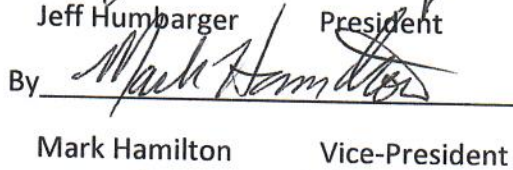 Jeff Humbarger President
By Mark Hamilton
Mark Hamilton Vice-President